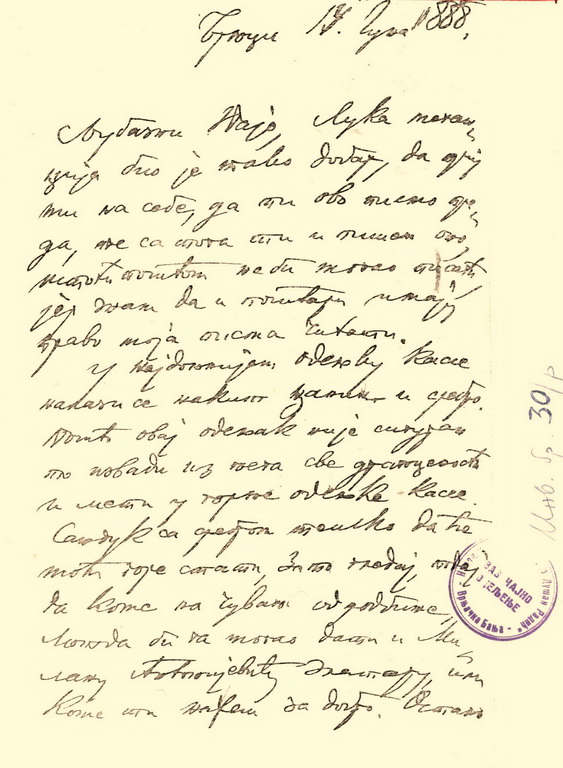 17. Јуна 1888,
Љубазни Пајо, Лука механ-
џија био је тако добар, да при-
ми на себе, да ти ово писмо пре-
да, те са тога ти и пишем ово,
поштом не би могао писати,
јер знам да и поштари имају
право моја писма читати.
У најдоњијем одељку касе
налази се накит и сребро.
Пошто овај одељак није сигуран
то повади из њега све драгоцености
и мети у горње одељке касе.
Сандук са сребром тешко да ће
моћи горе стати, за то гледај, подај
да коме на чување од родбине,
Можда би га могао дати и Ми-
лану или
коме ти нађеш за добро. Остало
Инв. бр. 30/Р